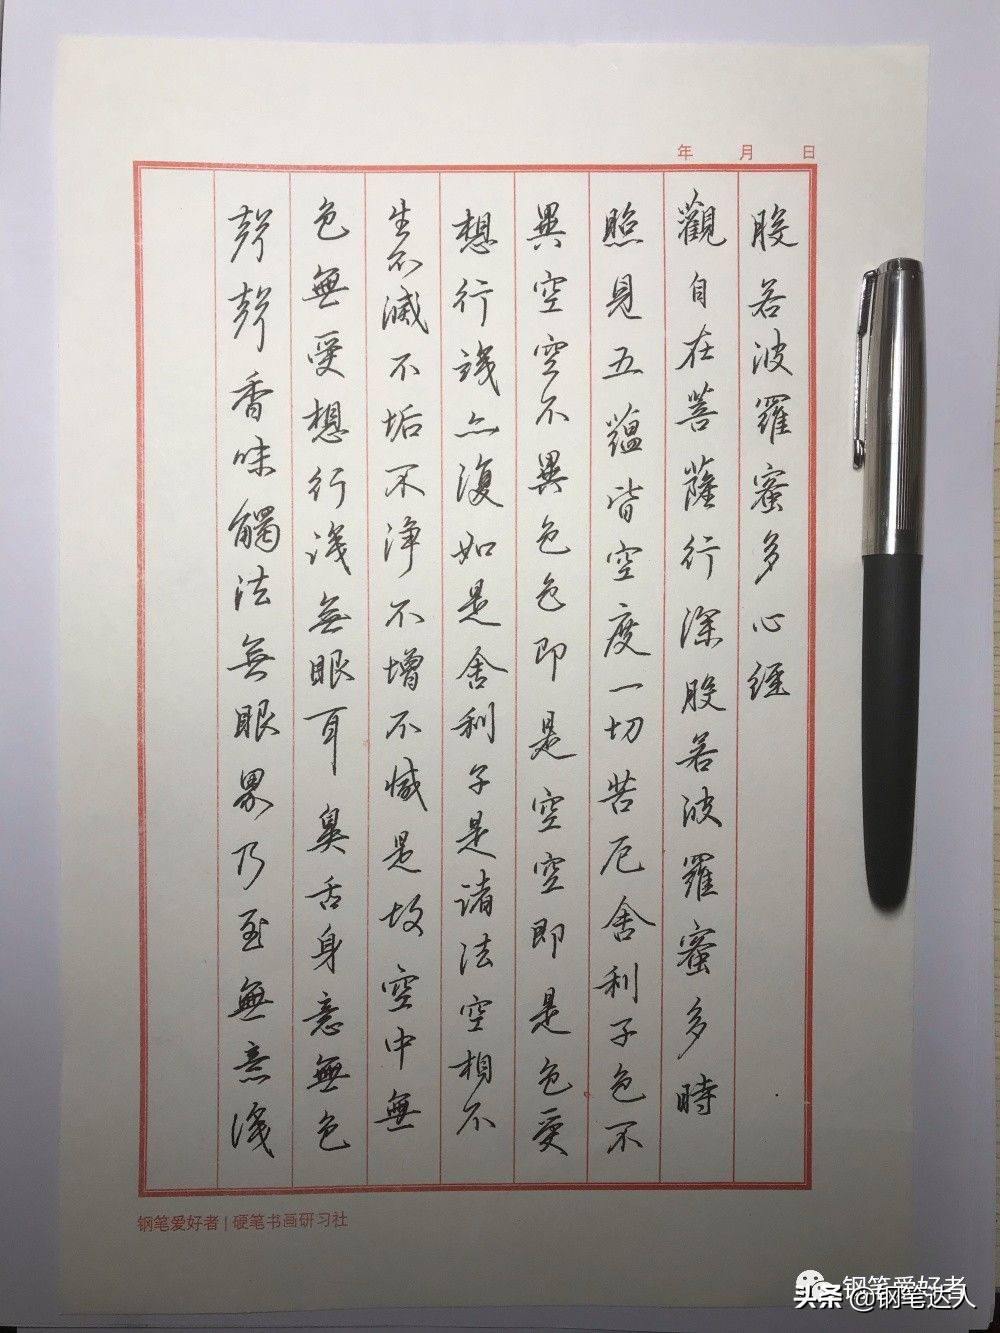 年 月 日
般若波羅蜜多心經
觀自在菩薩行深般若波羅蜜多時
照見五蘊皆空度一切苦厄舍利子色不
異空空不異色色即是空空即是色受
想行識亦復如是舍利子是諸法空相不
生不滅不垢不淨不增不減是故空中無
色無受想行識無眼耳鼻舌身意無色
聲聲香味觸法無眼界乃至無意識
钢笔爱好者 | 硬笔书画研习社
钢笔爱好者
头条 @钢笔达人